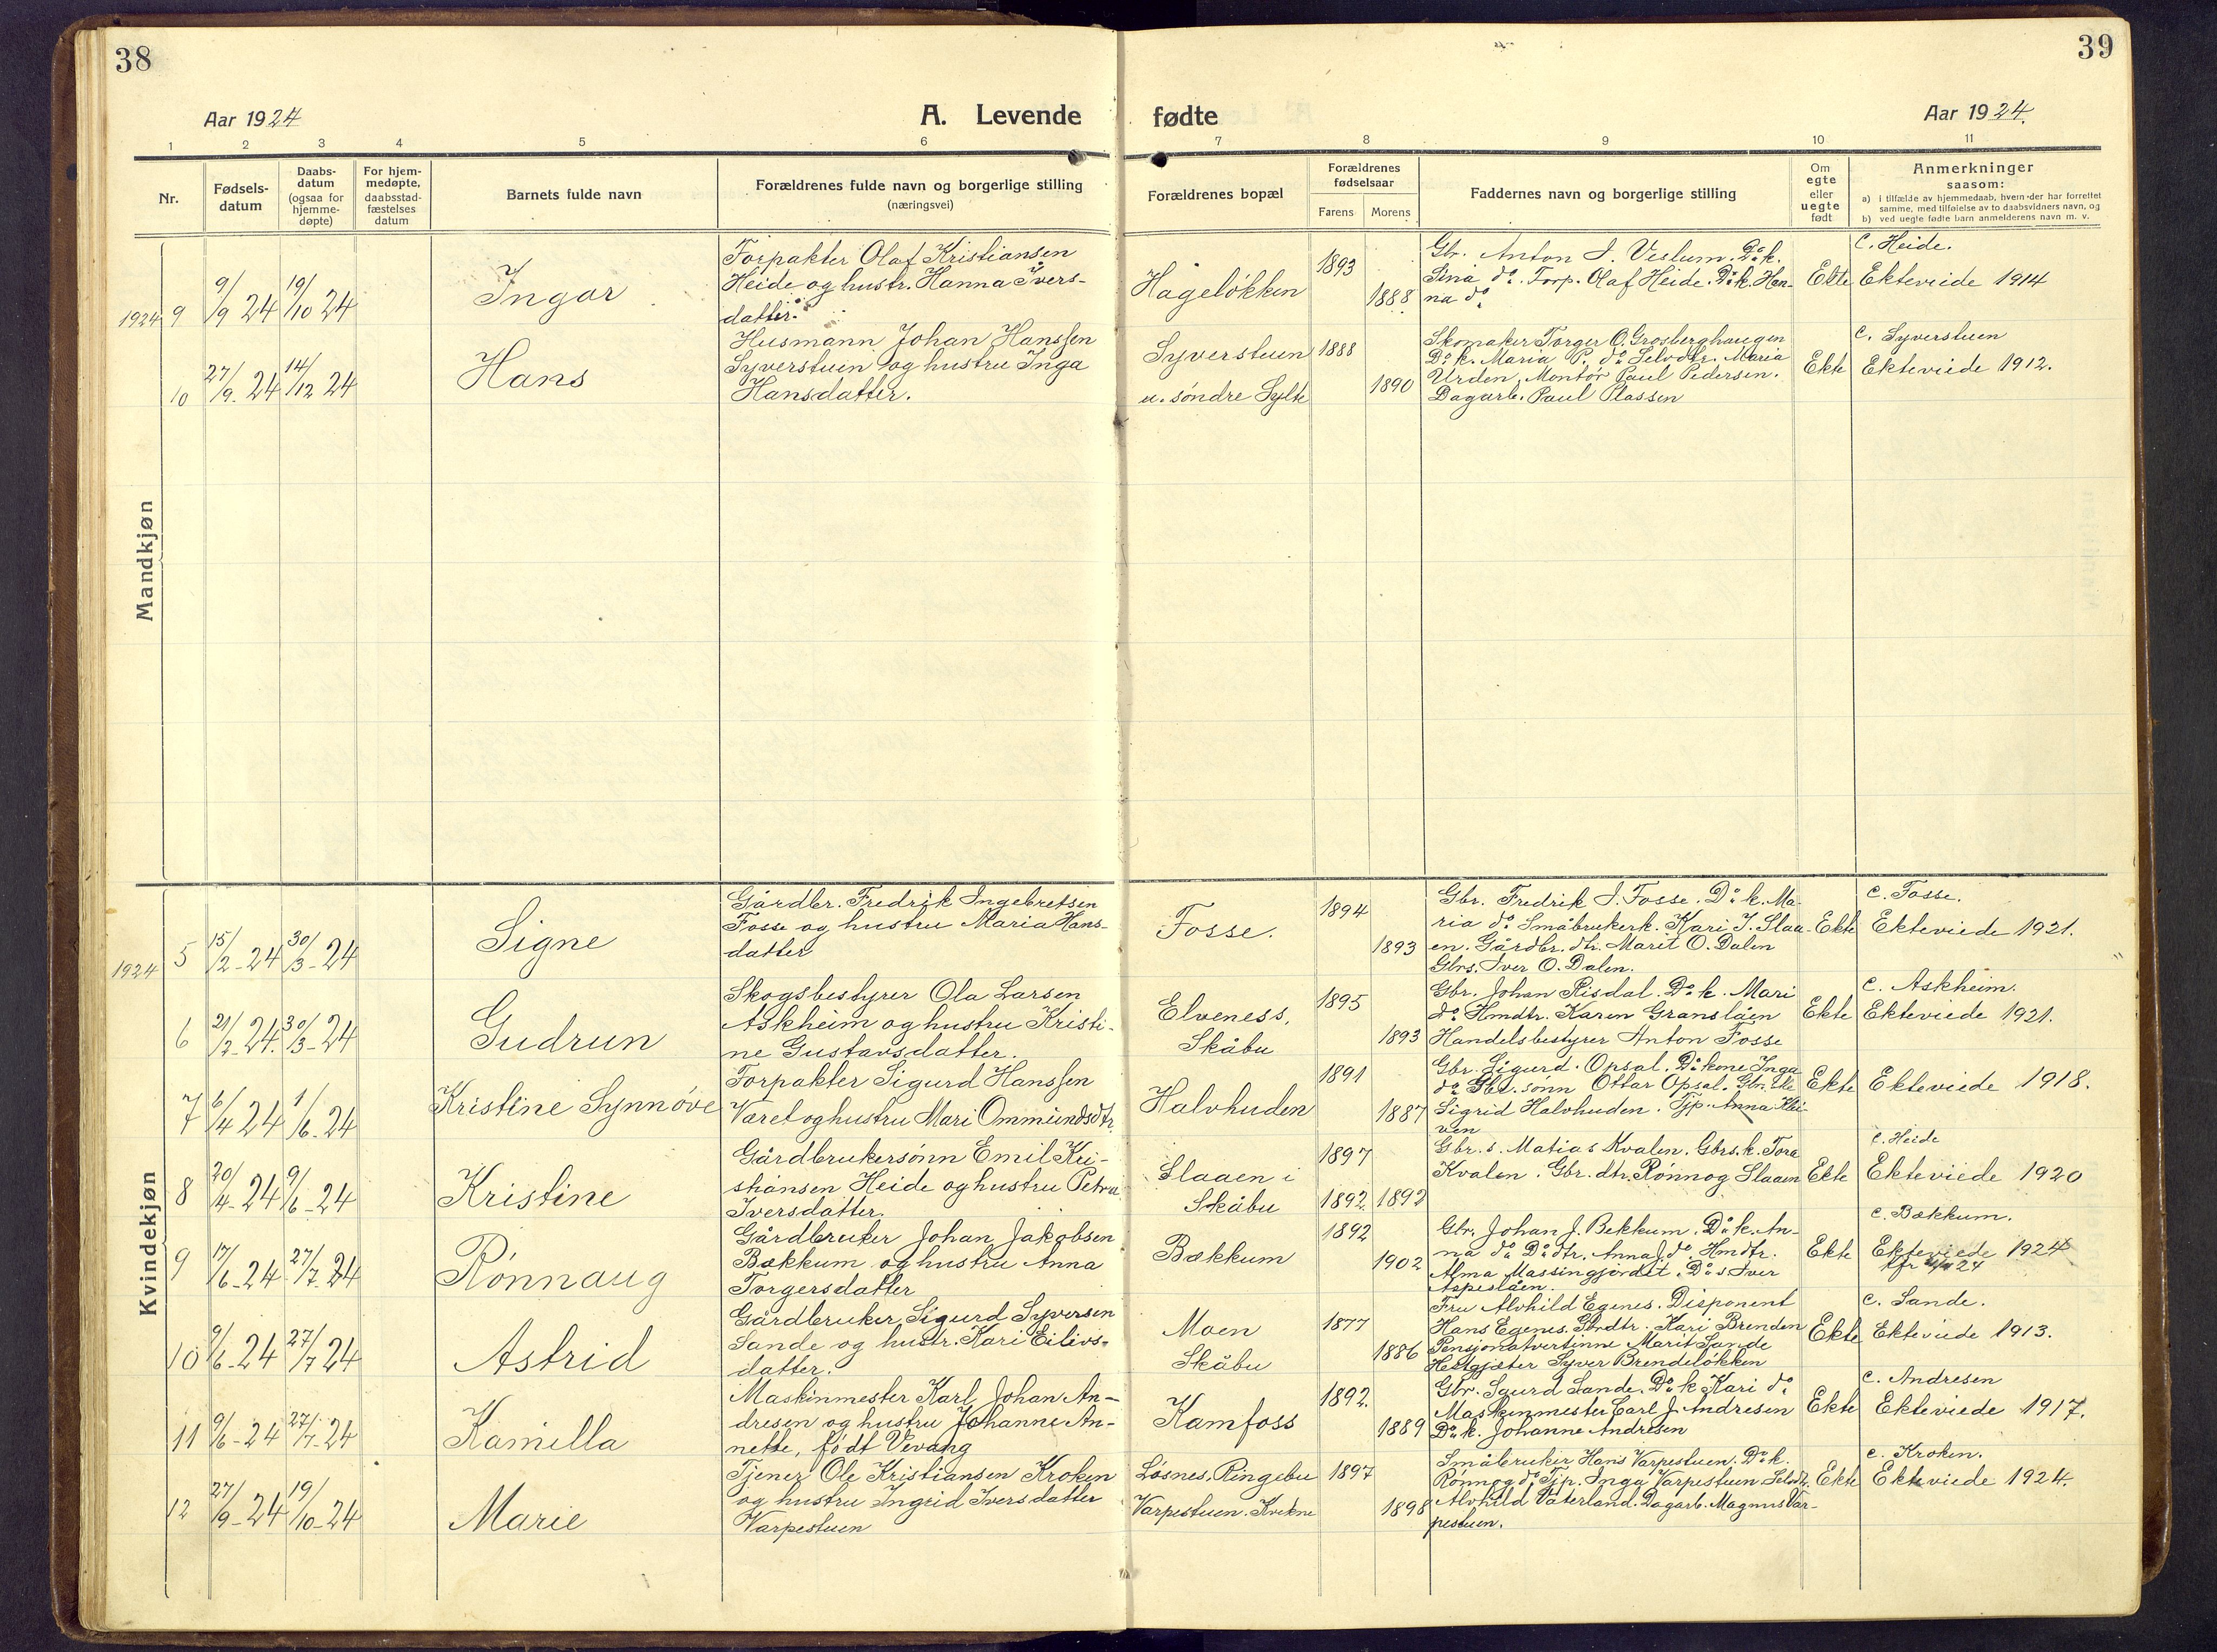 38
39
Aar 1924
A. Levende fødte
Aar 1924.
1 2 3 4 5 6 7 8 9 10 11
Nr.
Fødsels-
datum
Daabs-
datum
(ogsaa for
hjemme-
døpte)
For hjem-
medøpte,
daabsstad-
fæstelses
datum
Barnets fulde navn
Forældrenes fulde navn og borgerlige stilling
(næringsvei)
Forældrenes bopæl
Forældrenes
fødselsaar
Farens Morens
Faddernes navn og borgerlige stilling
Om
egte
eller
uegte
født
Anmerkninger
saasom:
a) i tilfælde av hjemmedaab, hvem der har forrettet
samme, med tilføielse av to daabsvidners navn, og
b) ved uegte fødte barn anmelderens navn m. v.
Mandkjøn
1924 9
9/9 24
19/10 24
Ingar
Forpakter Olaf Kristiansen
Heide og hustr. Hanna Ivers-
datter.
Hageløkken
1893
1888
Gbr. Anton I. Veslum. Do k.
Sina do. Forp. Olaf Heide. Do k. Han-
na do
Ekte
C. Heide.
Ekteviede 1914
10
27/9. 24
14/12 24
Hans
Husmann Johan Hanssen
Syverstuen og hustru Inga
Hansdatter.
Syverstuen
u. søndre Sylte
1888
1890
Skomaker Torger O. Grosberghaugen
Do k. Maria P. do Selvdtr. Maria
Urden. Montør Paul Pedersen.
Dagarb. Paul Plassen
Ekte
C. Syverstuen
Ekteviede 1912.
Kvindekjøn
1924 5
15/2-24
30/3-24
Signe
Gårdbr. Fredrik Ingebretsen
Fosse og hustru Maria Hans-
datter
Fosse.
1894
1893
Gbr. Fredrik I. Fosse. Do k. Ma-
ria do. Småbrukerk. Kari I. Slaa-
en. Gårdbr. dtr. Marit O. Dalen
Gbrs. Iver O. Dalen.
Ekte
C. Fosse.
Ekteviede 1921.
6
21/2-24.
30/3-24
Gudrun
Skogsbestyrer Ola Larsen
Askheim og hustru Kristi-
ne Gustavsdatter.
Elveness,
Skåbu
1895
1893
Gbr. Johan Risdal. Do k. Mari
do Hmdtr. Karen Gransleien
Handelsbestyrer Anton Fosse
Ekte
C. Askheim.
Ekteviede 1921.
7
6/4 24
1/6-24
Kristine Synnøve
Forpakter Sigurd Hanssen
Varet og hustru Mari Ommundsdtr.
Halvhuden
1891
1887
Gbr. Sigurd Opsal. Do kone Inga
do Gbr. sønn Ottar Opsal. Gbr.
Sigrid Halvhuden. Tjp. Anna Klei-
ven
Ekte
Ekteviede 1918.
8
20/4-24
9/6-24
Kristine
Gårdbrukersønn Emil Kri-
stiansen Heide og hustru Petra
Iversdatter.
Slaaen i
Skåbu
1897
1892. 1892
Gbr. s. Matias Kvalen. Gbrs. k. Tora
Kvalen. Gbr. dtr. Rønnog Slaaen
Ekte
C. Heide
Ekteviede 1920
9
17/6-24
27/7-24
Rønnaug
Gårdbruker Johan Jakobsen
Bækkum og hustru Anna
Torgersdatter
Bækkum
1892
1902
Gbr. Johan J. Bekkum. Do k. An-
na do. Do dtr. Anna J. do. Hmdtr.
Alma Massingjordet. Do s Iver
Aspeslåen.
Ekte
C. Bækkum.
Ekteviede 1924
10
9/6-24
27/7 24
Astrid
Gårdbruker Sigurd Syversen
Sande og hustr. Kari Eilivs-
datter.
Moen
Skåbu
1877
1886
Fru Alvhild Egenes. Disponent
Hans Egenes. Gbrdtr. Kari Brenden
Pensjonatvertinne Marit Sande
Hestgjæter Syver Brendeløkken
Ekte
C. Sande.
Ekteviede 1913.
11
9/6-24
27/7-24
Kamilla
Maskinmester Karl Johan An-
dresen og hustru Johanne An-
nette, født Vevang
Kamfoss
1892.
1889
Gbr. Sgurd Sande. Do k Kari do
Maskinmester Carl J. Andresen
Do k. Johanne Andresen
Ekte
C. Andresen
Ekteviede 1917.
12
27/9-24
19/10-24
Marie
Tjener Ole Kristiansen Kroken
og hustru Ingrid Iversdatter
Varpestuen
Løsnes. Ringebu
Varpestuen. Kvikne
1897
1898
Småbruker Hans Varpestuen. Do k.
Rønnog do. Tjp. Inga Varpestuen Selvdtr.
Alvhild Vaterland. Dagarb. Magnus Var-
pestuen.
Ekte
C. Kroken.
Ekteviede 1924.